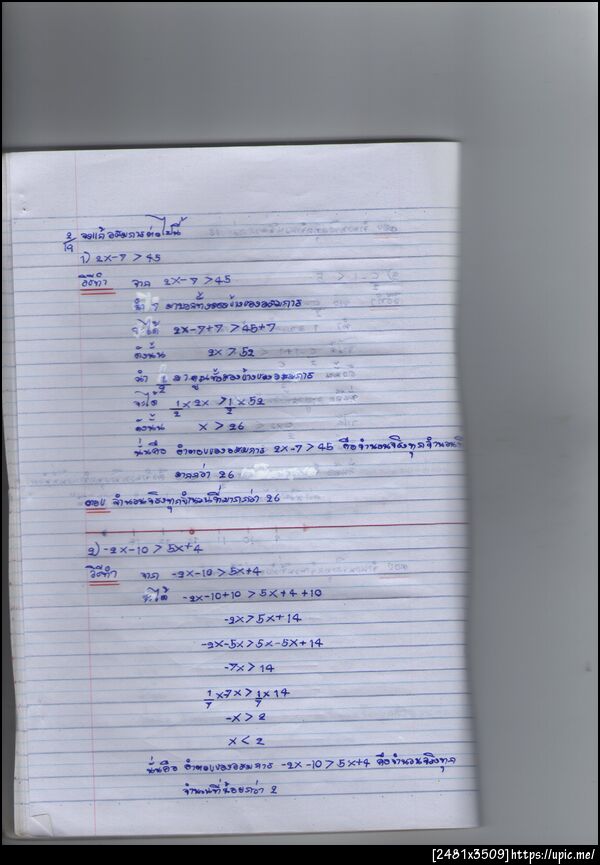 2/19 จงแก้อสมการต่อไปนี้
1) 2x-7 > 45
วิธีทำ จาก 2x-7 > 45
นำ 7 มาบวกทั้งสองข้างของอสมการ
จะได้ 2x-7+7 > 45+7
ดังนั้น 2x > 52
นำ 1/2 มาคูณทั้งสองข้างของอสมการ
จะได้ 1/2 x 2x > 1/2 x 52
ดังนั้น x > 26
นั่นคือ คำตอบของอสมการ 2x-7 > 45 คือจำนวนจริงทุกจำนวนที่
มากกว่า 26
ตอบ จำนวนจริงทุกจำนวนที่มากกว่า 26
2) -2x-10 > 5x+4
วิธีทำ จาก -2x-10 > 5x+4
จะได้ -2x-10+10 > 5x+4+10
-2x > 5x+14
-2x-5x > 5x-5x+14
-7x > 14
1/7 x -7x > 1/7 x 14
-x > 2
x < 2
นั่นคือ คำตอบของอสมการ -2x-10 > 5x+4 คือจำนวนจริงทุก
จำนวนที่น้อยกว่า 2
[2481x3509]https://upic.me/